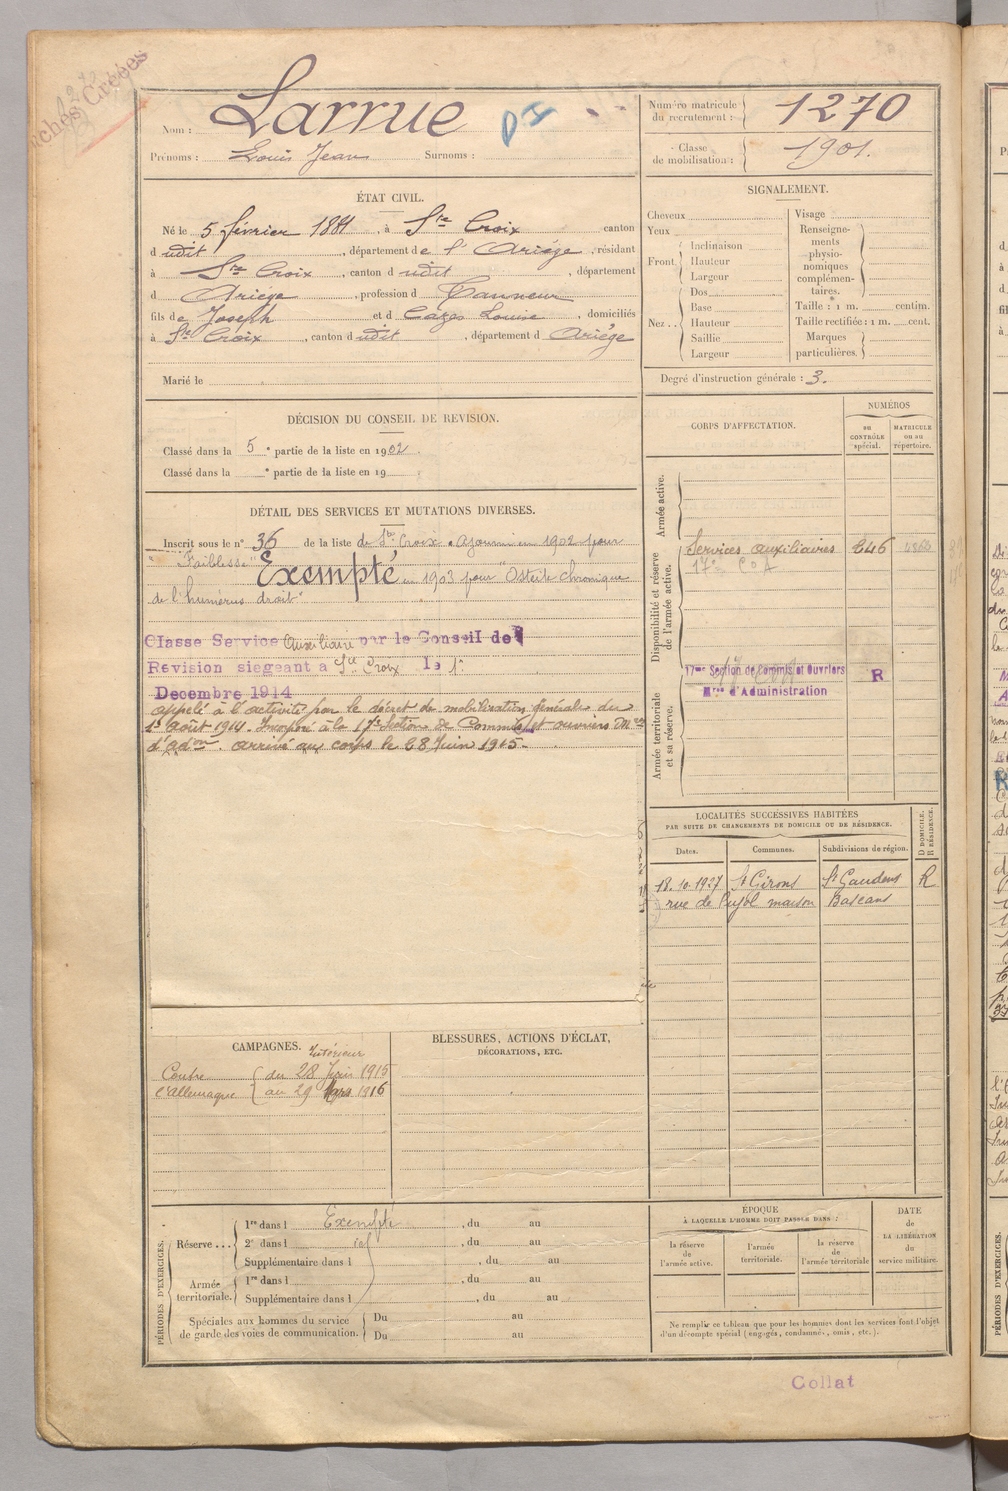 Fiches Créées
Nom : Larrue
Prénoms : Louis Jean Surnoms :
Numéro matricule du recrutement : 1270
Classe de mobilisation : 1901.
ÉTAT CIVIL.
Né le 5 février 1881, à Ste Croix canton
dudit, département de l'Ariége, résidant
à Ste Croix, canton dudit, département
d Ariége, profession d Tanneur
fils de Joseph et d Cazes Louise, domiciliés
à Ste Croix, canton dudit, département d Ariége
Marié le
SIGNALEMENT.
Cheveux
Yeux
Front. Inclinaison
Hauteur
Largeur
Nez .. Dos
Base
Hauteur
Saillie
Largeur
Visage
Renseignements physionomiques complémentaires.
Taille : 1 m. centim.
Taille rectifiée : 1 m. cent.
Marques particulières.
Degré d'instruction générale : 3.
DÉCISION DU CONSEIL DE REVISION.
Classé dans la 5e partie de la liste en 1902.
Classé dans la e partie de la liste en 19
DÉTAIL DES SERVICES ET MUTATIONS DIVERSES.
Inscrit sous le n° 36 de la liste de Ste Croix. Ajourné en 1902 pour
"Faiblesse" Exempté en 1903 pour "Ostéite chronique
de l'humérus droit"
Classe Service Auxiliaire par le Conseil de
Revision siegeant a Ste Croix le 1er
Decembre 1914
appelé à l'activité par le décret de mobilisation générale du
1er août 1914. Incorporé à la 17e Section de Commis et ouvriers Mres
d'adon arrivé au corps le 28 Juin 1915.
CORPS D'AFFECTATION.
NUMÉROS
au CONTRÔLE spécial.
MATRICULE ou au répertoire.
Armée active.
Disponibilité et réserve de l'armée active.
Services auxiliaires 246
17e COA
Armée territoriale et sa réserve.
17me Section de Commis et Ouvriers
Mres d'Administration R
LOCALITÉS SUCCESSIVES HABITÉES
PAR SUITE DE CHANGEMENTS DE DOMICILE OU DE RÉSIDENCE.
Dates. Communes. Subdivisions de région. D DOMICILE. R RÉSIDENCE.
18.10.1927 St Girons St Gaudens R
rue de Pujol maison Bascans
CAMPAGNES.
Intérieur
Contre du 28 Juin 1915
l'Allemagne au 29 Mars 1916
BLESSURES, ACTIONS D'ÉCLAT,
DÉCORATIONS, ETC.
PÉRIODES D'EXERCICES.
Réserve ... 1re dans l Exempté, du au
2e dans l id, du au
Supplémentaire dans l, du au
Armée territoriale. 1re dans l, du au
Supplémentaire dans l, du au
Spéciales aux hommes du service de garde des voies de communication. Du au
Du au
ÉPOQUE
À LAQUELLE L'HOMME DOIT PASSER DANS :
la réserve de l'armée active.
l'armée territoriale.
la réserve de l'armée territoriale
DATE de LA LIBÉRATION du service militaire.
Ne remplir ce tableau que pour les hommes dont les services font l'objet
d'un décompte spécial (engagés, condamnés, omis, etc.).
Collat